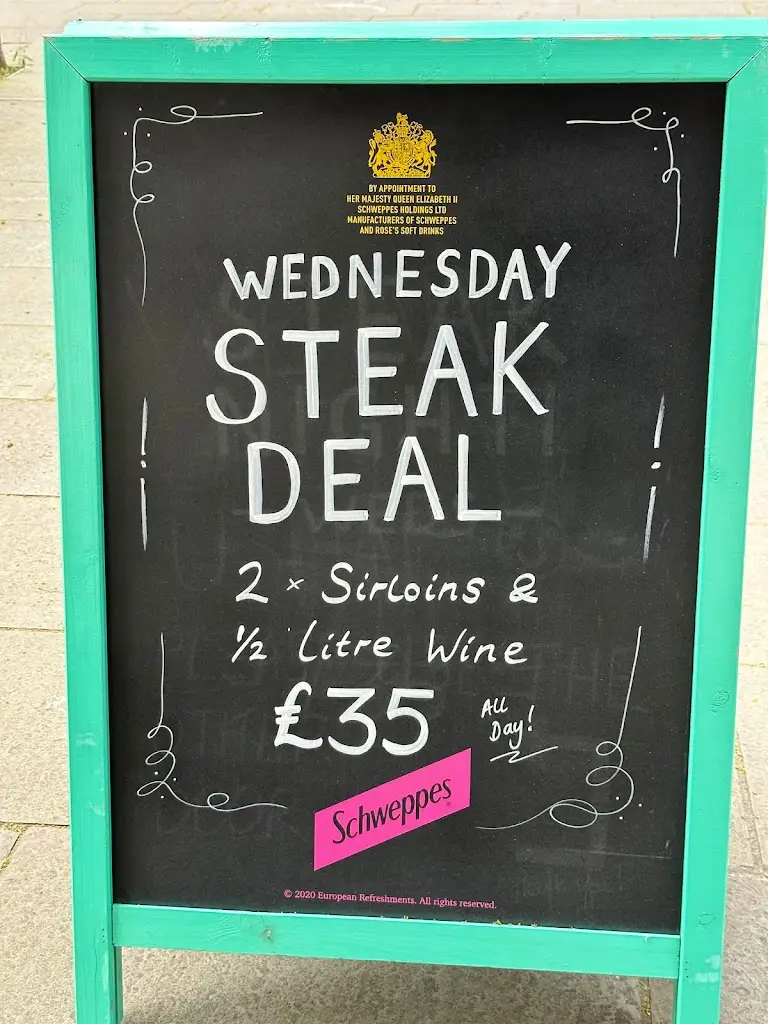 BY APPOINTMENT TO
HER MAJESTY QUEEN ELIZABETH II
SCHWEPPES HOLDINGS LTD
MANUFACTURERS OF SCHWEPPES
AND ROSE'S SOFT DRINKS
WEDNESDAY
STEAK
DEAL
2 x Sirloins &
½ Litre Wine
£35
All
Day!
Schweppes
© 2020 European Refreshments. All rights reserved.